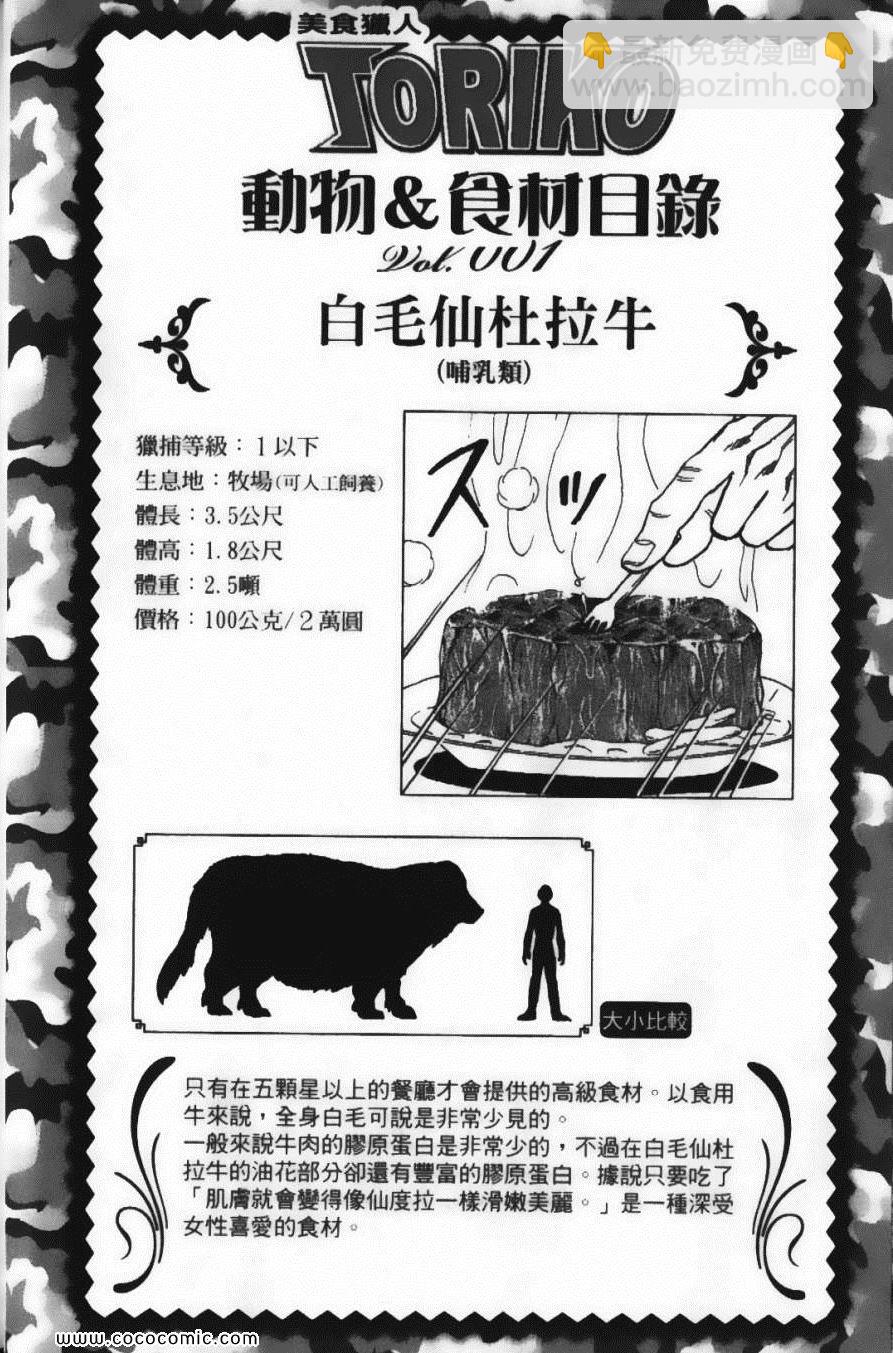 美食獵人
TORIKO
👇最新免费漫画👇
www.baozimh.com
動物&食材目錄
Vol. 001
白毛仙杜拉牛
(哺乳類)
獵捕等級：1以下
生息地：牧場(可人工飼養)
體長：3.5公尺
體高：1.8公尺
體重：2.5噸
價格：100公克/2萬圓
スッ
大小比較
只有在五顆星以上的餐廳才會提供的高級食材。以食用
牛來說，全身白毛可說是非常少見的。
一般來說牛肉的膠原蛋白是非常少的，不過在白毛仙杜
拉牛的油花部分卻還有豐富的膠原蛋白。據說只要吃了
「肌膚就會變得像仙度拉一樣滑嫩美麗。」是一種深受
女性喜愛的食材。
www.cococomic.com